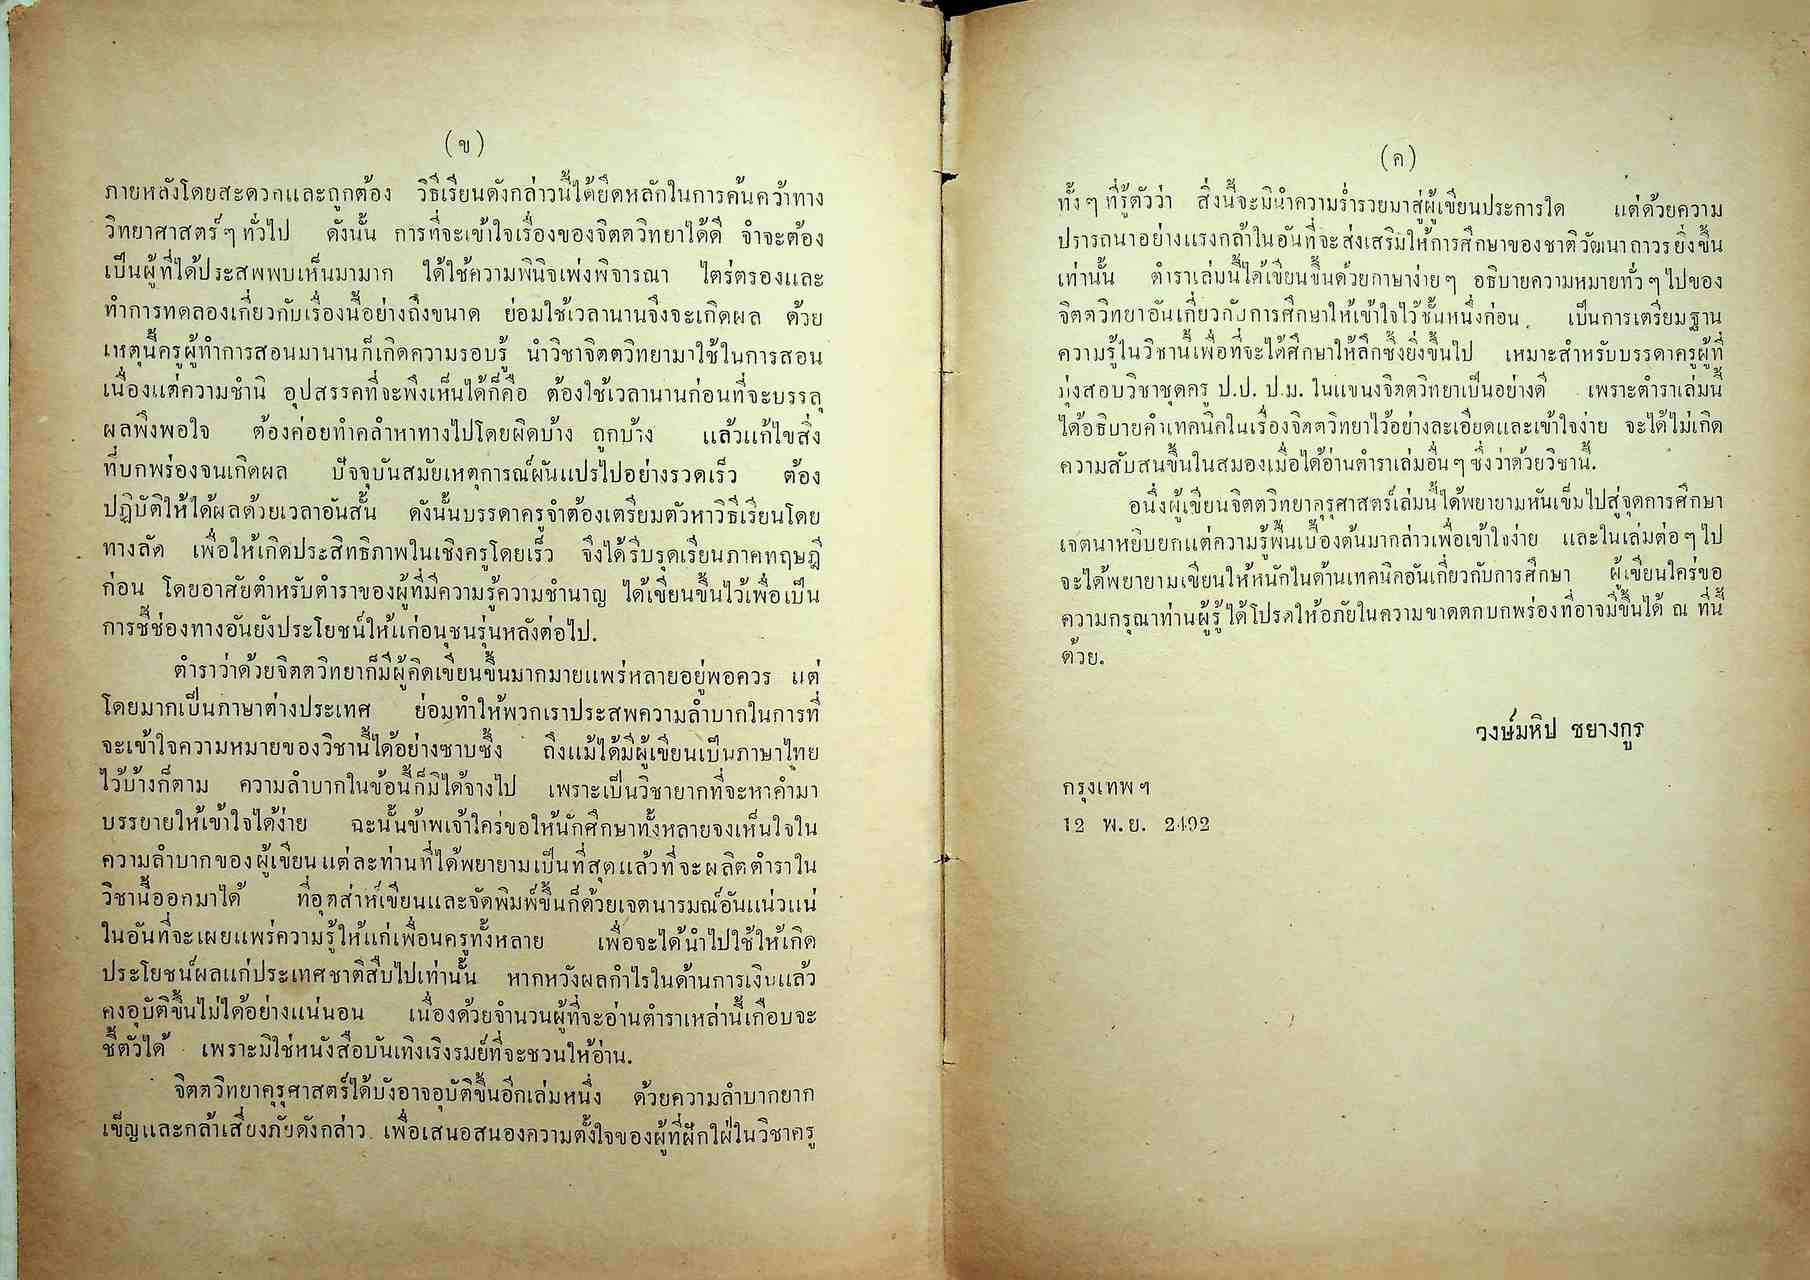 (ข)
ภายหลังโดยสะดวกและถูกต้อง วิธีเรียนดังกล่าวนี้ได้ยึดหลักในการค้นคว้าทาง
วิทยาศาสตร์ๆ ทั่วไป ดังนั้น การที่จะเข้าใจเรื่องของจิตตวิทยาได้ดี จำจะต้อง
เป็นผู้ที่ได้ประสพพบเห็นมามาก ได้ใช้ความพินิจเพ่งพิจารณา ไตร่ตรองและ
ทำการทดลองเกี่ยวกับเรื่องนี้อย่างถึงขนาด ย่อมใช้เวลานานจึงจะเกิดผล ด้วย
เหตุนี้ครูผู้ทำการสอนมานานก็เกิดความรอบรู้ นำวิชาจิตตวิทยามาใช้ในการสอน
เนื่องแต่ความชำนิ อุปสรรคที่จะพึงเห็นได้ก็คือ ต้องใช้เวลานานก่อนที่จะบรรลุ
ผลพึงพอใจ ต้องค่อยทำคลำหาทางไปโดยผิดบ้าง ถูกบ้าง แล้วแก้ไขสิ่ง
ที่บกพร่องจนเกิดผล ปัจจุบันสมัยเหตุการณ์ผันแปรไปอย่างรวดเร็ว ต้อง
ปฏิบัติให้ได้ผลด้วยเวลาอันสั้น ดังนั้นบรรดาครูจำต้องเตรียมตัวหาวิธีเรียนโดย
ทางลัด เพื่อให้เกิดประสิทธิภาพในเชิงครูโดยเร็ว จึงได้รีบรุดเรียนภาคทฤษฎี
ก่อน โดยอาศัยตำหรับตำราของผู้ที่มีความรู้ความชำนาญ ได้เขียนขึ้นไว้เพื่อเป็น
การชี้ช่องทางอันยังประโยชน์ให้แก่อนุชนรุ่นหลังต่อไป.
ตำราว่าด้วยจิตตวิทยาก็มีผู้คิดเขียนขึ้นมากมายแพร่หลายอยู่พอควร แต่
โดยมากเป็นภาษาต่างประเทศ ย่อมทำให้พวกเราประสพความลำบากในการที่
จะเข้าใจความหมายของวิชานี้ได้อย่างซาบซึ้ง ถึงแม้ได้มีผู้เขียนเป็นภาษาไทย
ไว้บ้างก็ตาม ความลำบากในข้อนี้ก็มิได้จางไป เพราะเป็นวิชายากที่จะหาคำมา
บรรยายให้เข้าใจได้ง่าย ฉะนั้นข้าพเจ้าใคร่ขอให้นักศึกษาทั้งหลายจงเห็นใจใน
ความลำบากของผู้เขียนแต่ละท่านที่ได้พยายามเป็นที่สุดแล้วที่จะผลิตตำราใน
วิชานี้ออกมาได้ ที่อุตส่าห์เขียนและจัดพิมพ์ขึ้นก็ด้วยเจตนารมณ์อันแน่วแน่
ในอันที่จะเผยแพร่ความรู้ให้แก่เพื่อนครูทั้งหลาย เพื่อจะได้นำไปใช้ให้เกิด
ประโยชน์ผลแก่ประเทศชาติสืบไปเท่านั้น หากหวังผลกำไรในด้านการเงินแล้ว
คงอุบัติขึ้นไม่ได้อย่างแน่นอน เนื่องด้วยจำนวนผู้ที่จะอ่านตำราเหล่านี้เกือบจะ
ชี้ตัวได้ เพราะมิใช่หนังสือบันเทิงเริงรมย์ที่จะชวนให้อ่าน.
จิตตวิทยาคุรุศาสตร์ได้บังอาจอุบัติขึ้นอีกเล่มหนึ่ง ด้วยความลำบากยาก
เข็ญและกล้าเสี่ยงภัยดังกล่าว เพื่อเสนอสนองความตั้งใจของผู้ที่ฝักใฝ่ในวิชาครู
(ค)
ทั้งๆ ที่รู้ตัวว่า สิ่งนี้จะมินำความร่ำรวยมาสู่ผู้เขียนประการใด แต่ด้วยความ
ปรารถนาอย่างแรงกล้าในอันที่จะส่งเสริมให้การศึกษาของชาติวัฒนาถาวรยิ่งขึ้น
เท่านั้น ตำราเล่มนี้ได้เขียนขึ้นด้วยภาษาง่ายๆ อธิบายความหมายทั่วๆ ไปของ
จิตตวิทยาอันเกี่ยวกับการศึกษาให้เข้าใจไว้ชั้นหนึ่งก่อน เป็นการเตรียมฐาน
ความรู้ในวิชานี้เพื่อที่จะได้ศึกษาให้ลึกซึ้งยิ่งขึ้นไป เหมาะสำหรับบรรดาครูผู้ที่
มุ่งสอบวิชาชุดครู ป.ป. ป.ม. ในแขนงจิตตวิทยาเป็นอย่างดี เพราะตำราเล่มนี้
ได้อธิบายคำเทคนิคในเรื่องจิตตวิทยาไว้อย่างละเอียดและเข้าใจง่าย จะได้ไม่เกิด
ความสับสนขึ้นในสมองเมื่อได้อ่านตำราเล่มอื่นๆ ซึ่งว่าด้วยวิชานี้.
อนึ่งผู้เขียนจิตตวิทยาคุรุศาสตร์เล่มนี้ได้พยายามหันเข็มไปสู่จุดการศึกษา
เจตนาหยิบยกแต่ความรู้พื้นเบื้องต้นมากล่าวเพื่อเข้าใจง่าย และในเล่มต่อๆ ไป
จะได้พยายามเขียนให้หนักในด้านเทคนิคอันเกี่ยวกับการศึกษา ผู้เขียนใคร่ขอ
ความกรุณาท่านผู้รู้ได้โปรดให้อภัยในความขาดตกบกพร่องที่อาจมีขึ้นได้ ณ ที่นี้
ด้วย.
วงษ์มหิป ชยางกูร
กรุงเทพฯ
12 พ.ย. 2492